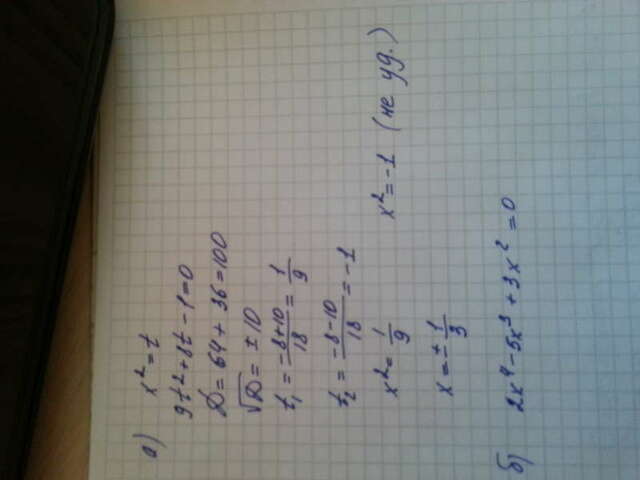 а) x² = t
9t² + 8t - 1 = 0
D = 64 + 36 = 100
√D = ± 10
t₁ = (-8+10)/18 = 1/9
t₂ = (-8-10)/18 = -1
x² = 1/9 x² = -1 (не уд.)
x = ± 1/3
б) 2x⁴ - 5x³ + 3x² = 0